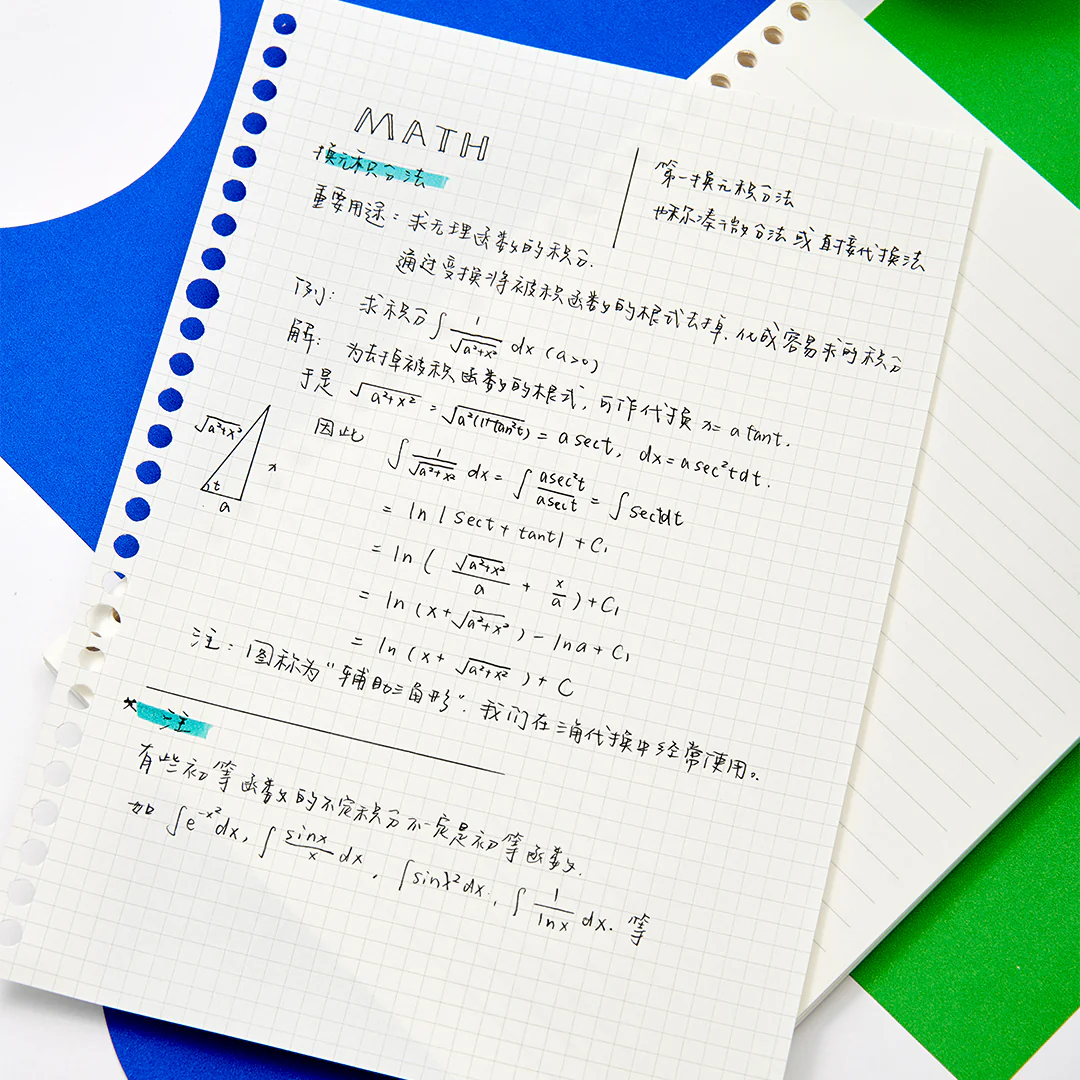 MATH
换元积分法
第一换元积分法
也称凑微分法或直接代换法
重要用途：求无理函数的积分.
通过变换将被积函数的根式去掉.化成容易求的积分
例：求积分∫ 1/√(a²+x²) dx (a>0)
解：为去掉被积函数的根式，可作代换 x = a tant.
于是 √(a²+x²) = √(a²(1+tan²t)) = a sect, dx = a sec²t dt.
因此 ∫ 1/√(a²+x²) dx = ∫ asec²t/asect = ∫ sectdt
= ln|sect + tant| + C₁
= ln( √(a²+x²)/a + x/a ) + C₁
= ln(x+√(a²+x²)) - lna + C₁
= ln(x+ √(a²+x²)) + C
√(a²+x²)
x
t
a
注：图称为“辅助三角形”.我们在三角代换中经常使用。
* 注
有些初等函数的不定积分不一定是初等函数.
如 ∫e^(-x²)dx, ∫ sinx/x dx, ∫sinx²dx, ∫ 1/lnx dx. 等